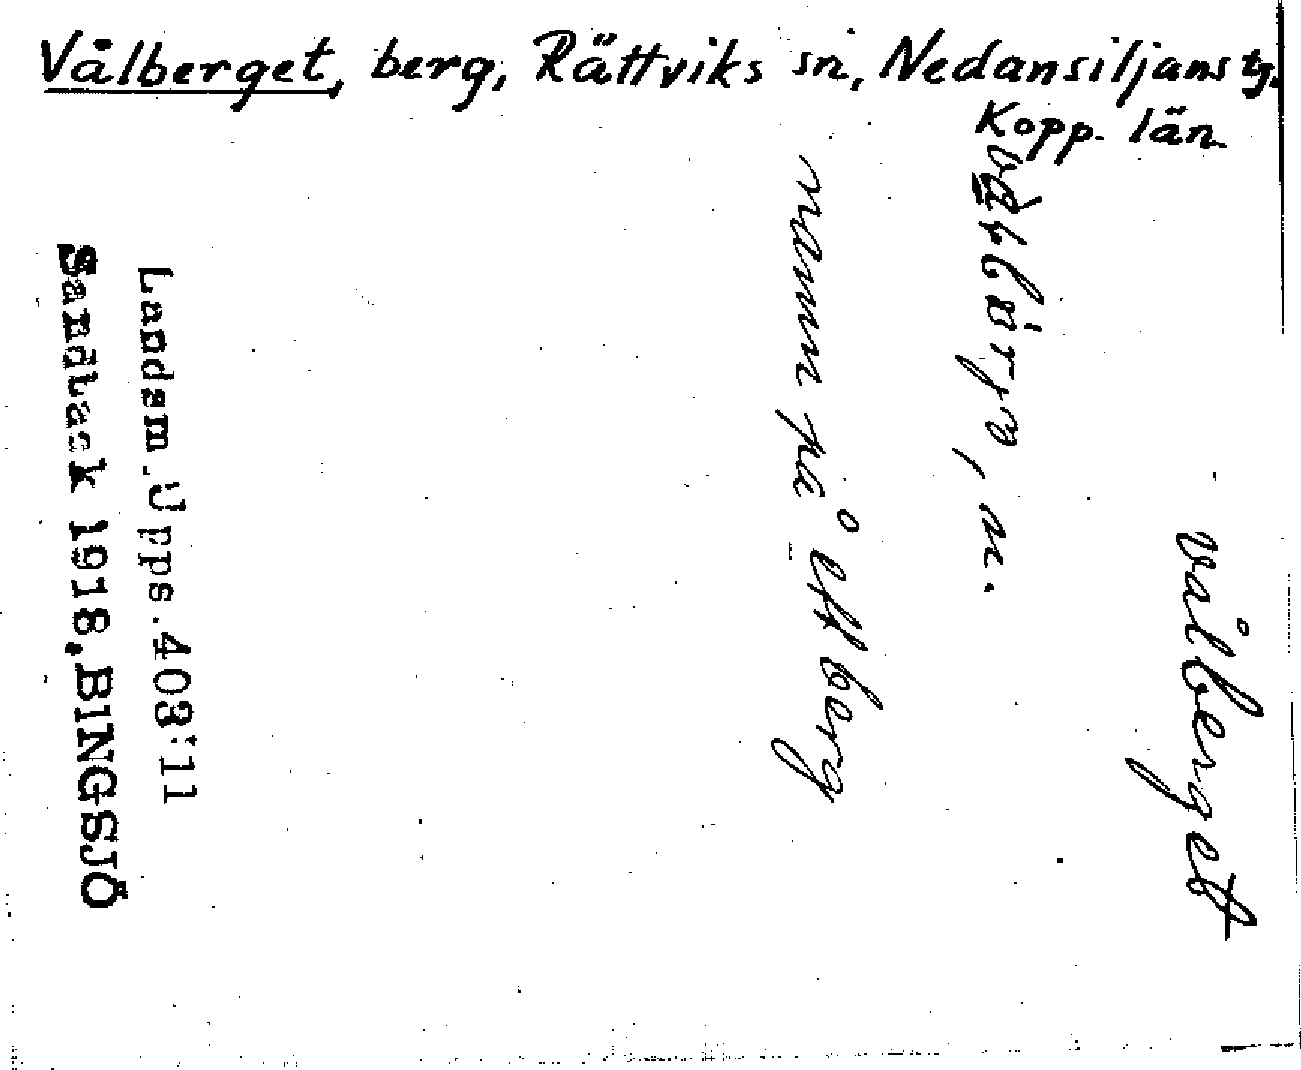 Vålberget, berg, Rättviks sn, Nedansiljans tg.
Kopp. län
vålberget
namn på ett berg
Landsm. Upps. 403:11
Sandback 1918, BINGSJÖ